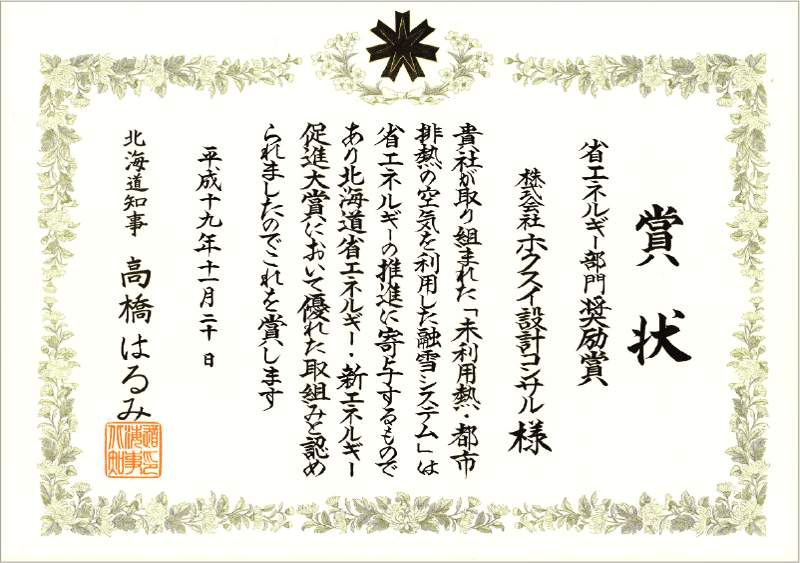 賞状
省エネルギー部門奨励賞
株式会社 ホクスイ設計コンサル 様
貴社が取り組まれた「未利用熱・都市
排熱の空気を利用した融雪システム」は
省エネルギーの推進に寄与するもので
あり北海道省エネルギー・新エネルギー
促進大賞において優れた取組みと認め
られましたのでこれを賞します
平成十九年十一月二十日
北海道知事 高橋はるみ